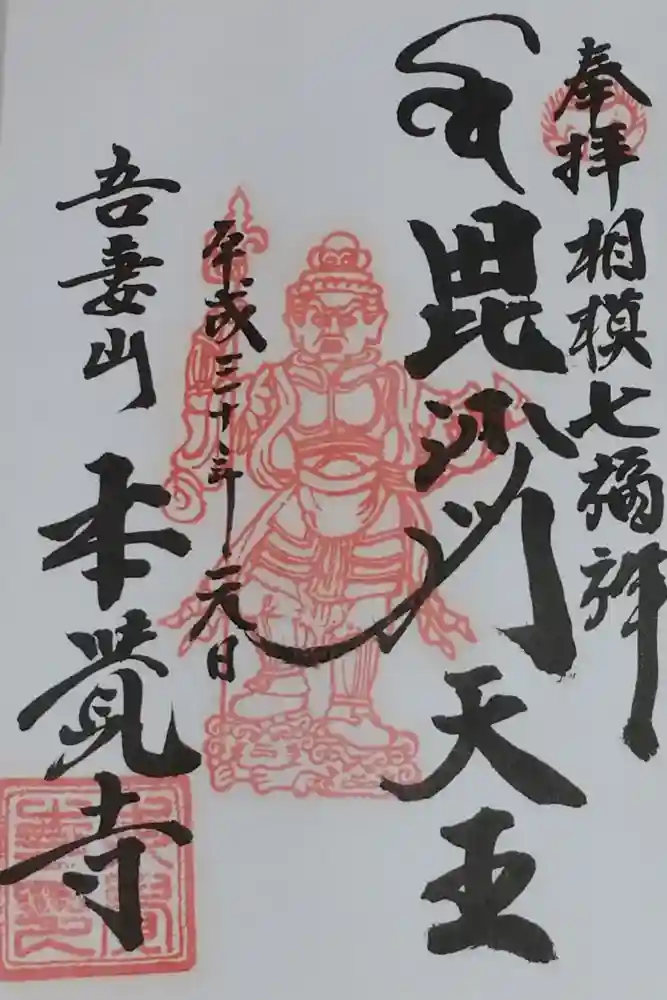 奉拝 相模七福神
毘沙門天王
平成三十二年元日
吾妻山 本覺寺